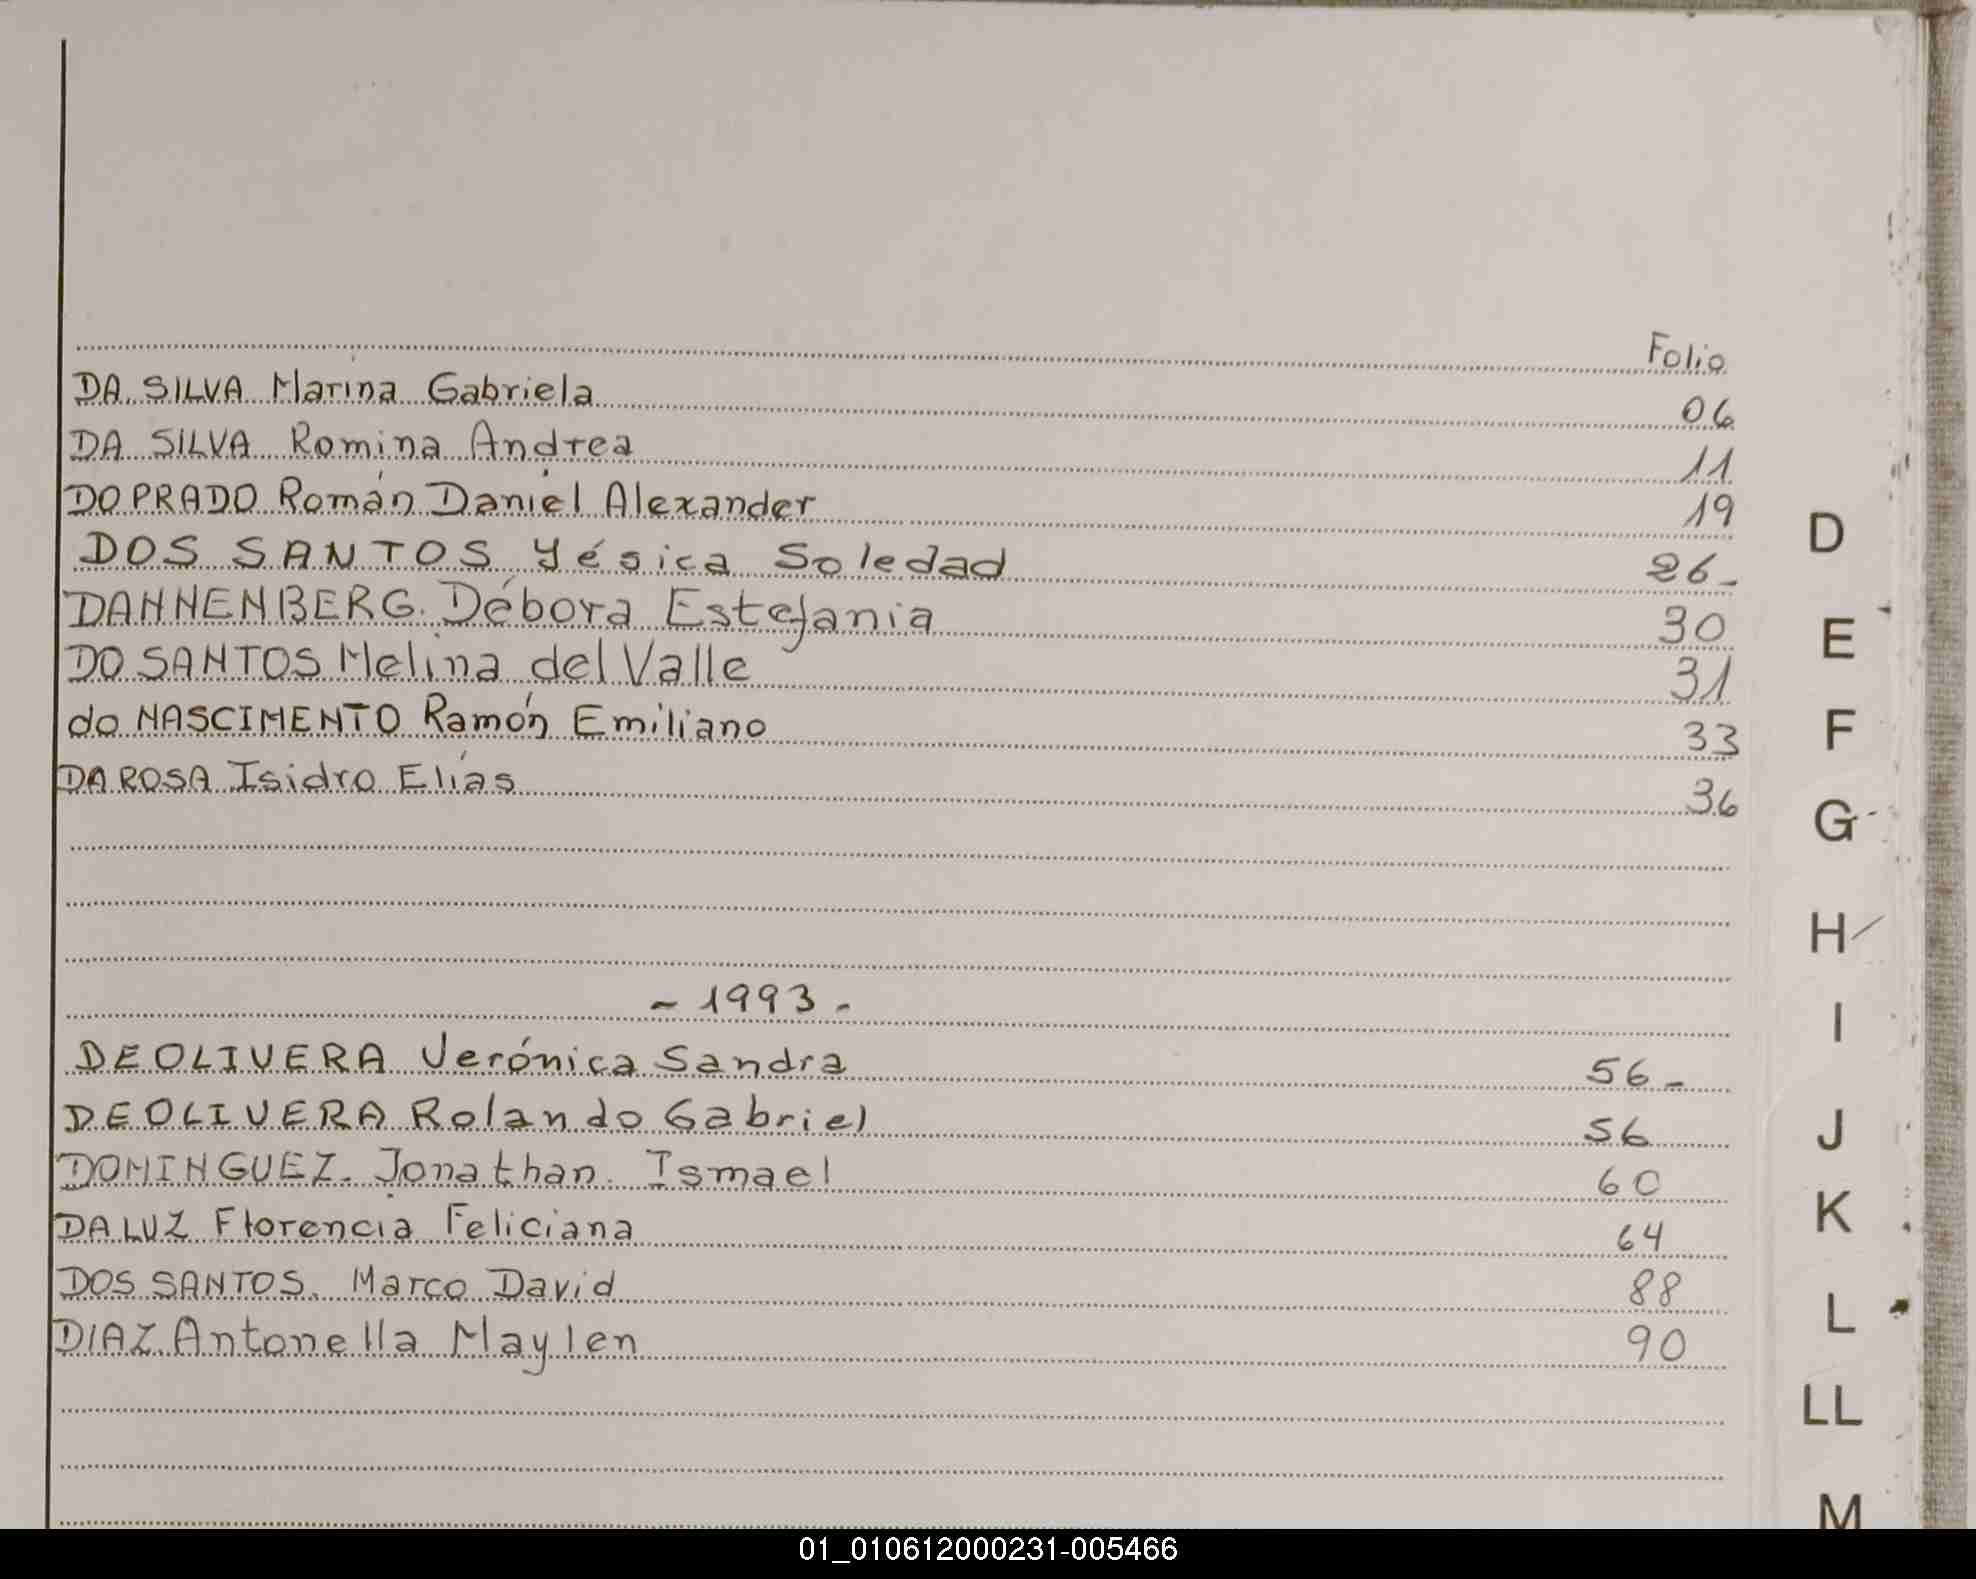 Folio
DA SILVA Marina Gabriela 06
DA SILVA Romina Andrea 11
DO PRADO Román Daniel Alexander 19
DOS SANTOS Yésica Soledad 26-
DANNENBERG. Débora Estefania 30
DO SANTOS Melina del Valle 31
do NASCIMENTO Ramón Emiliano 33
DA ROSA Isidro Elías 36
- 1993 -
DE OLIVERA Verónica Sandra 56-
DE OLIVERA Rolando Gabriel 56
DOMINGUEZ. Jonathan Ismael 60
DA LUZ Florencia Feliciana 64
DOS SANTOS. Marco David 88
DIAZ. Antonella Maylen 90
D
E
F
G
H
I
J
K
L
LL
M
01_010612000231-005466